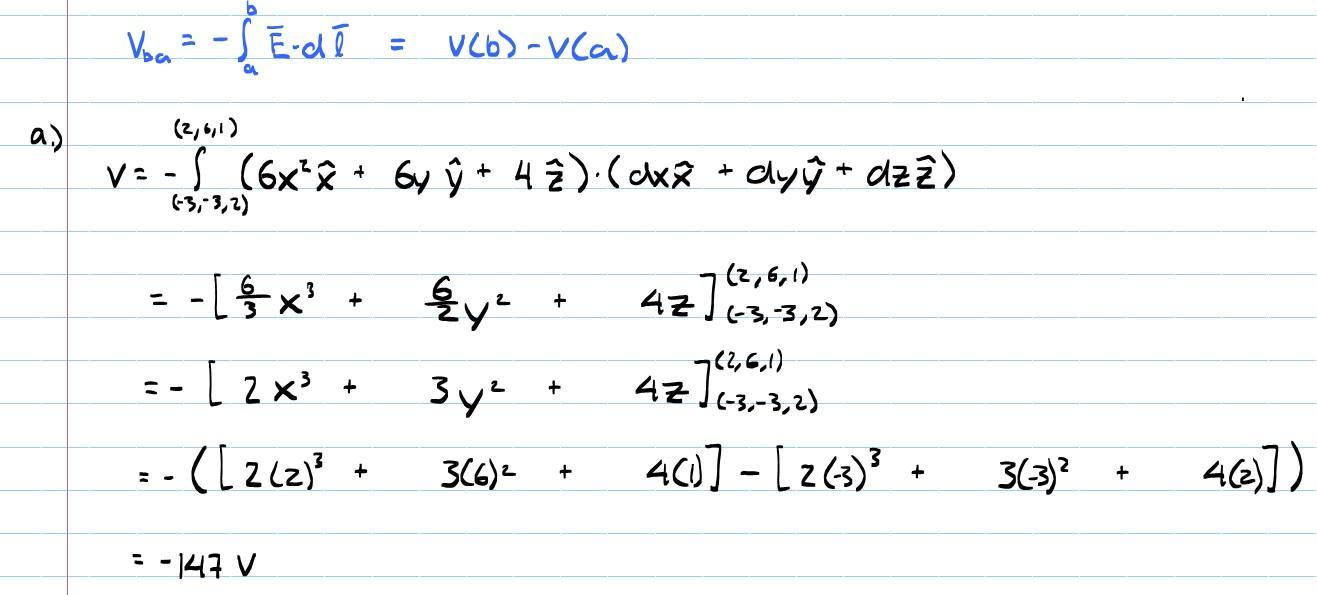 V_ba = -∫_a^b E̅·d l̅ = V(b) - V(a)
a.)
V = -∫_(-3,-3,2)^(2,6,1) (6x² x̂ + 6y ŷ + 4 ẑ)·(dx x̂ + dy ŷ + dz ẑ)
= -[ 6/3 x³ + 6/2 y² + 4z ]_(-3,-3,2)^(2,6,1)
= -[ 2x³ + 3y² + 4z ]_(-3,-3,2)^(2,6,1)
= -([2(2)³ + 3(6)² + 4(1)] - [2(-3)³ + 3(-3)² + 4(2)])
= -147 V